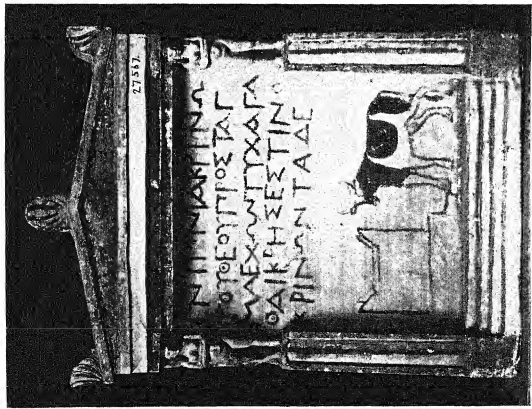 27567.
ΝΥΠΝΙΑΚΡΙΝΩ
ΤΟΥΘΕΟΥΠΡΟΣΤΑΓ
ΜΑΕΧΩΝΤΥΧΑΓΑ
ΘΑΙΚΡΗΣΕΣΤΙΝΟ
ΚΡΙΝΩΝΤΑΔΕ